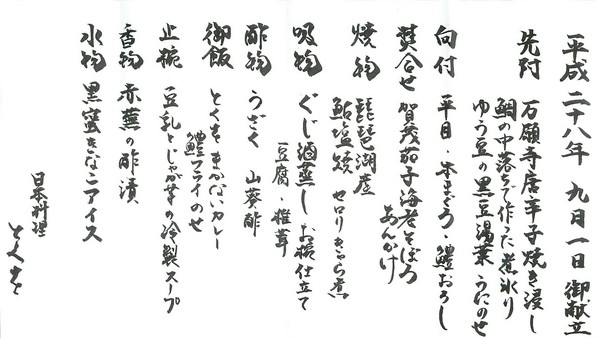 平成二十八年 九月一日 御献立
先附 万願寺唐辛子焼き浸し
鯛の中落ちで作った煮氷り
ゆう豆の黒豆湯葉 うにのせ
向付 平目・本まぐろ・鱧おろし
焚合せ 賀茂茄子海老そぼろ
あんかけ
焼物 琵琶湖産
鮎塩焼 セロリきゃら煮
吸物 ぐじ酒蒸し お椀仕立て
豆腐・椎茸
酢物 うざく 山葵酢
御飯 とくをまかないカレー
鱧フライのせ
止椀 豆乳とじゃが芋の冷製スープ
香物 赤蕪の酢漬
水物 黒蜜きなこアイス
日本料理
とくを